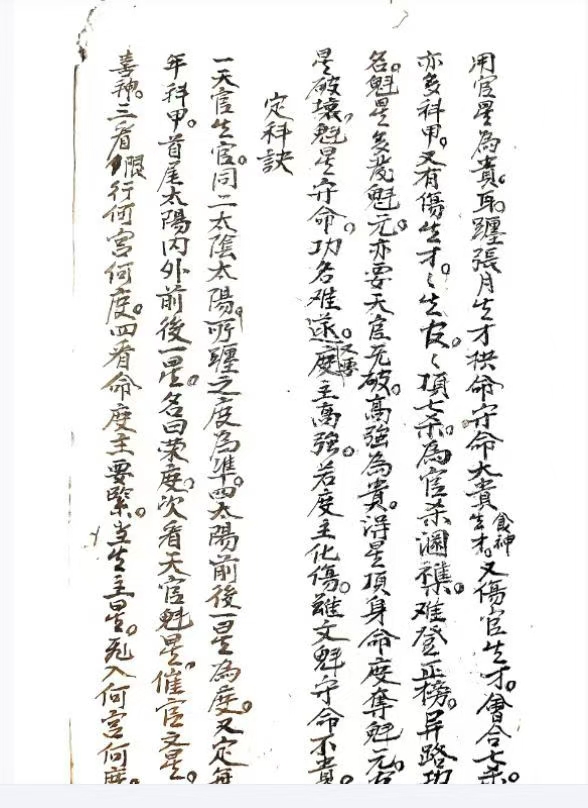 用官星為貴。耳躔張月生才拱命守命大貴食神生才。又傷官生才。會合七杀。
亦多科甲。又有傷生才〻生官。〻頂七杀。為官杀溷襍。难登正榜。异路功
名。魁星多發魁元。亦要天官无破。高強為貴。得星頂身命度奪魁元。
星破壞。魁星守命。功名难遂。又要度主高強。若度主化傷。虽文魁守命不貴。
定科訣
一天官生官。同二太陰太陽。所躔之度為準。四太陽前後一星為度。又定每
年科甲。首尾太陽内外前後一星。名曰荣度。次看天官魁星。催官文星。
喜神。三看限行何宮何度。四看命度主要緊。当生主星。飛入何宮何度。